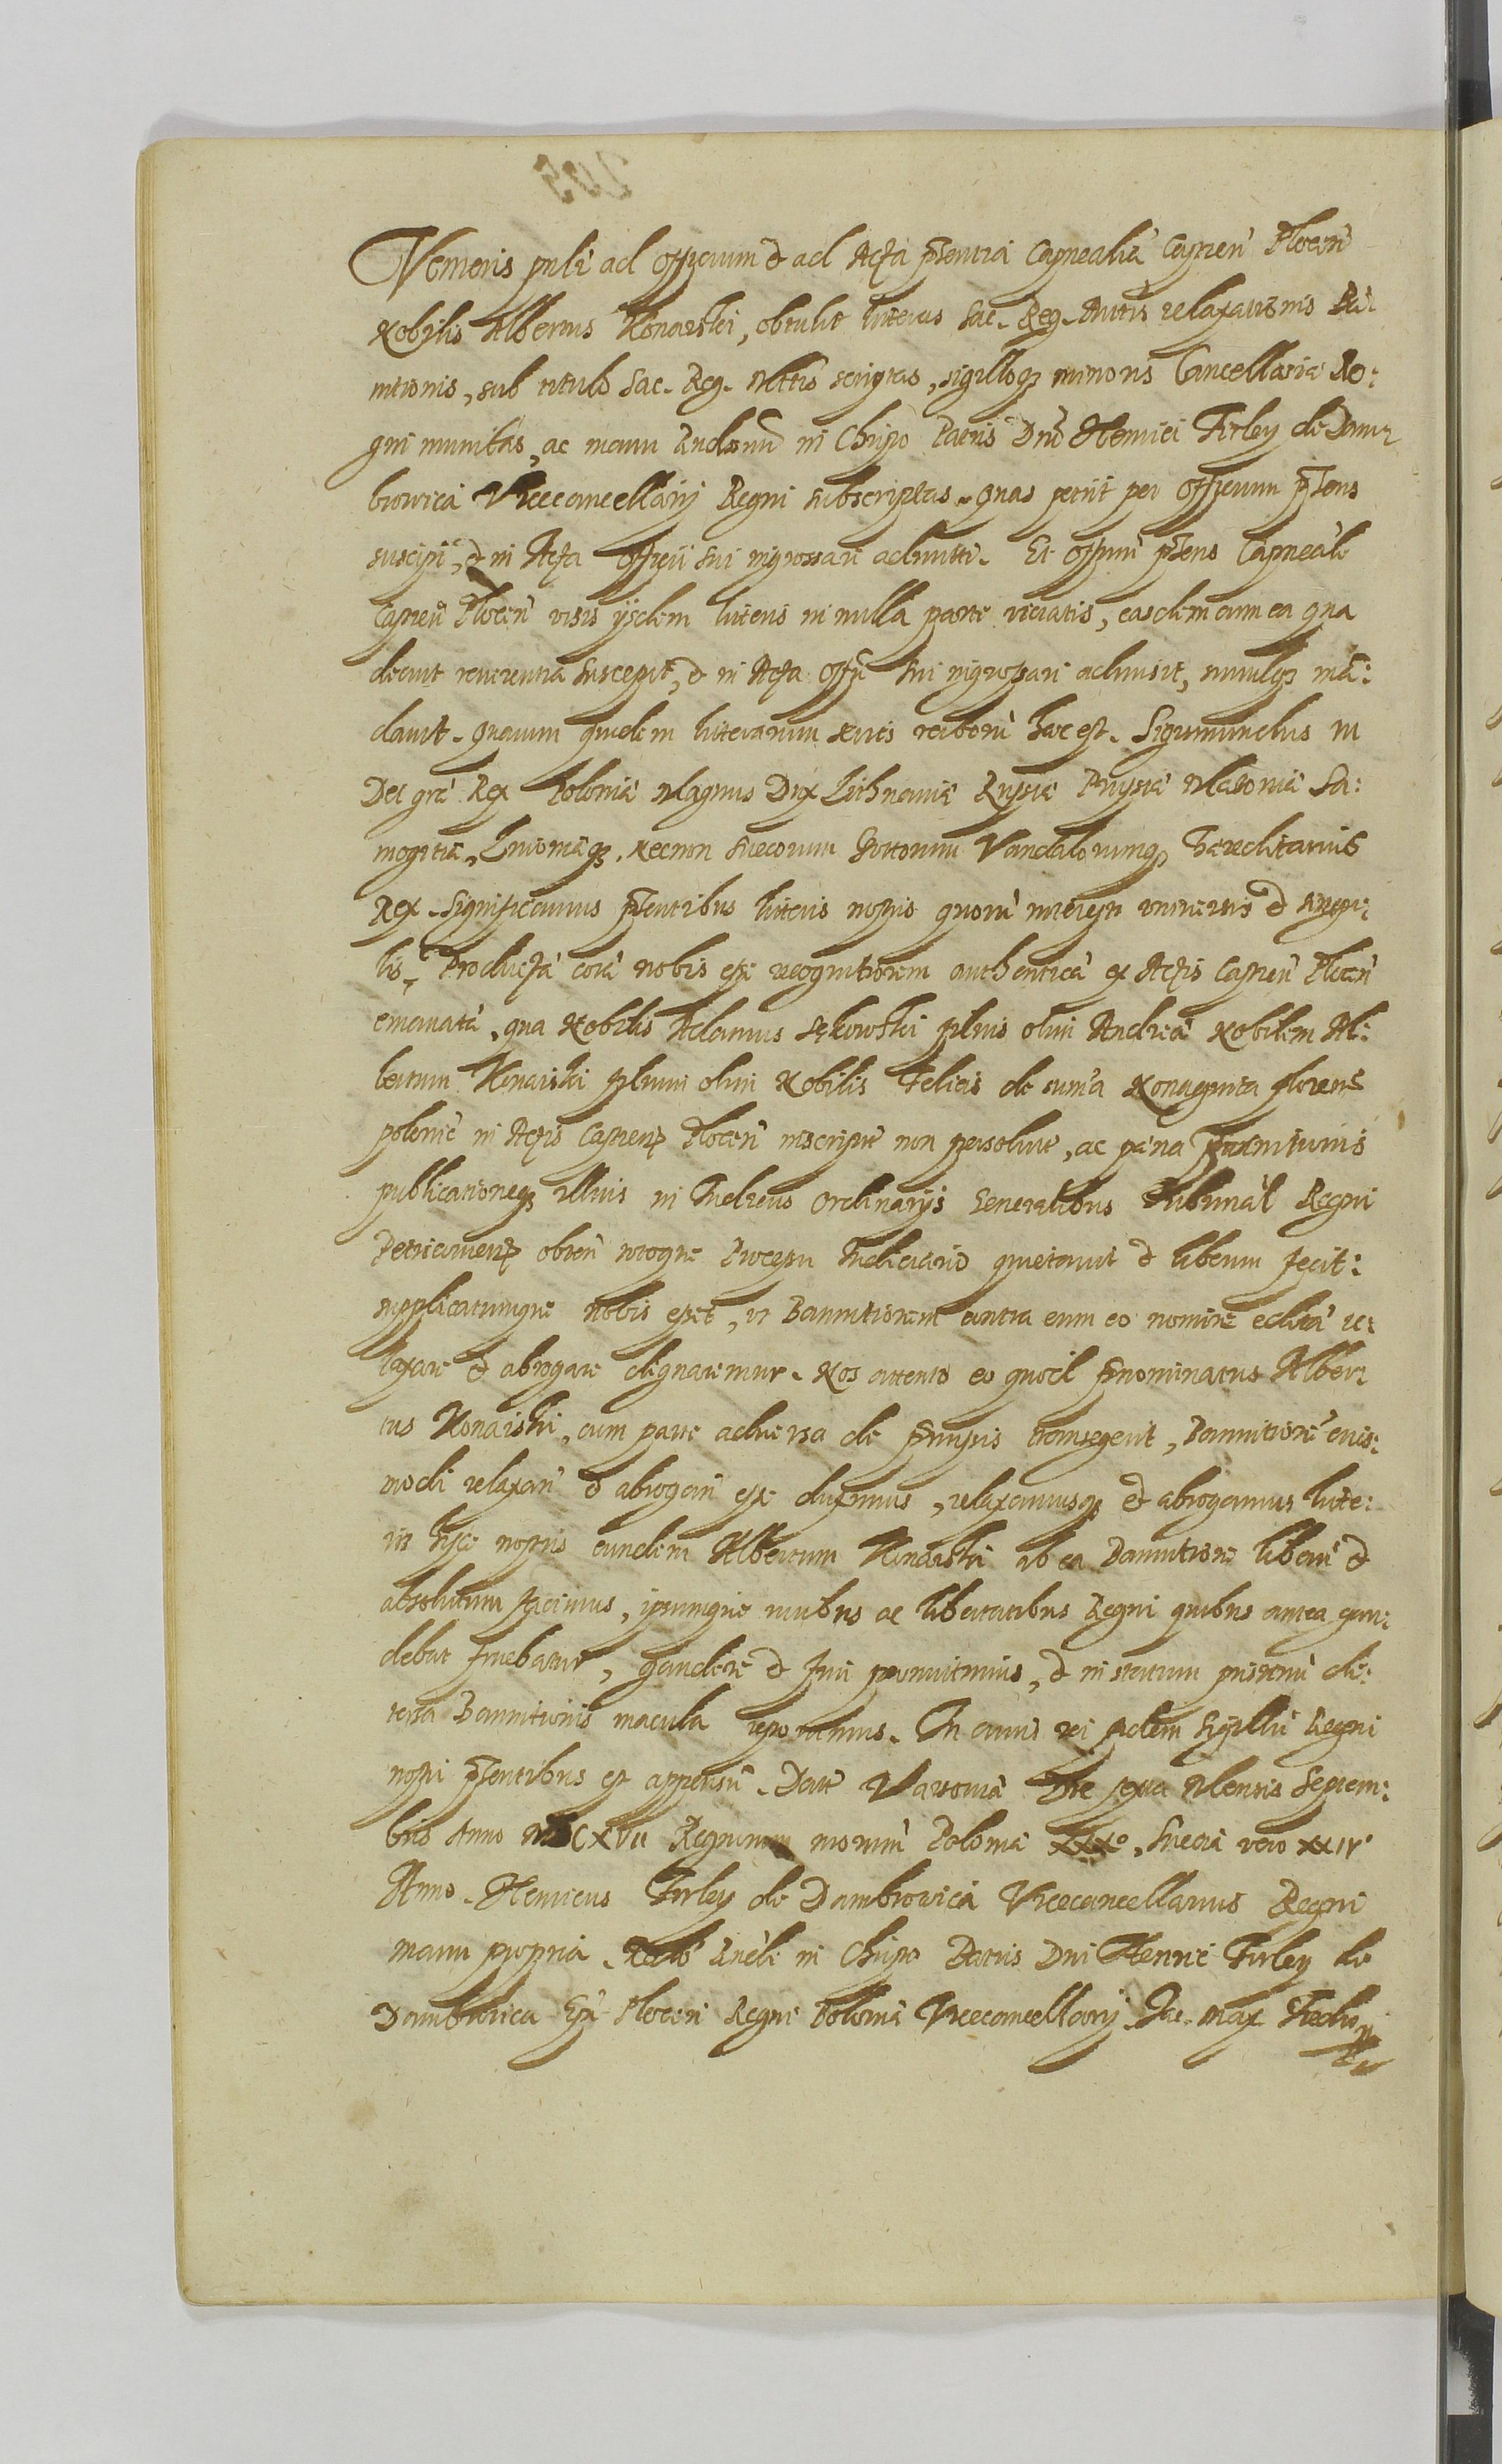 Veniens psnlr ad Officium & ad Acta pñtia Capnealia Castren Plocen
Nobilis Albertus Konarski, obtulit literas Sac. Reg. Mttis relaxationis Ban
nitionis, sub titulo Sac. Reg. Mttis scriptas, sigilloq minoris Cancellariæ Re:
gni munitas, ac manu Rndssmi in Chrispo Patris Dni Henrici Firley de Dam
browica Vicecancellarij Regni subscriptas. quas petiit per Officium pñsens
suscipi, & in Acta Officii sui ingrossari admitti. Et Offium pñsens Capneale
Castren Plocen visis ijsdem literis in nulla parte viciatis, easdem cum ea qua
decuit reverentia suscepit, & in Acta Offij sui ingrossari admisit, simulq mā:
davit. quarum quidem literarum series verborū hæc est. Sigismundus III
Dei grã Rex Poloniæ Magnus Dux Lithuaniæ Russiæ Prussiæ Masoviæ Sa:
mogitiæ, Livoniæq, necnon Suecorum Gottorum Vandalorumq hæreditarius
Rex. Significamus pñsentibus literis nostris quorū interest universis & singu:
lis, Productã corã nobis esse recognitionem authenticã ex Actis Castren Plocen
emanatã, qua Nobilis Adamus Sękowski filius olim Andreæ Nobilem Al:
bertum Konarski filium olim Nobilis Felicis de summa Nonaginta florens
polonic in Actis Castren Plocen inscripta non persoluta, ac pæna Bannitionis
publicationeq illius in Iudicijs Ordinarijs Generalibus Tribunal Regni
Petricovien obten totoque Processu Iudiciario quietavit & liberum fecit:
supplicatumque nobis esset, ut Bannitionem contra eum eo nomine editã re:
laxare & abrogare dignaremur. Nos attento eo quod pñominatus Alber:
tus Konarski, cum parte adversa de præmissis transegerit, Bannitionē eius:
modi relaxari & abrogari esse duximus, relaxamusq & abrogamus lite:
ris hisce nostris eundem Albertum Konarski ab ea Bannitione liberū &
absolutum facimus, ipsumque iuribus ac libertatibus Regni quibus antea gau:
debat fruebatur, gaudere & frui permittimus, & in statum pristinū de:
tersa Bannitionis macula reponimus. In cuius rei fidem Sigillū Regni
nostri pñsentibus est appensū. Datt Varsoviæ Die sexta Mensis Septem:
bris Anno MDCXVII Regnorum nostrorū Poloniæ XXX°, Sueciæ vero XXIV°
Anno. Henricus Firley de Dambrowica Vicecancellarius Regni
manu propria. Relatio Rñdi in Chrispo Patris Dni Henric Firley de
Dambrowica Epi Plocen Regni Poloniæ Vicecancellarij. Jac. Max.